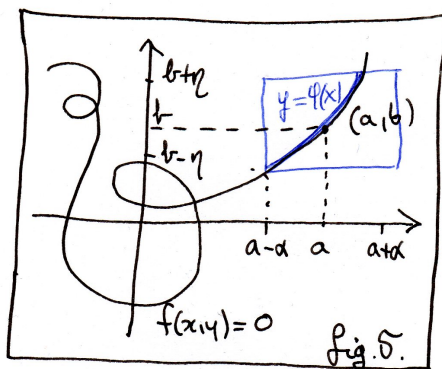 b+η
b
b-η
y=φ(x)
(a,b)
a-α
a
a+α
f(x,y)=0
fig.5.